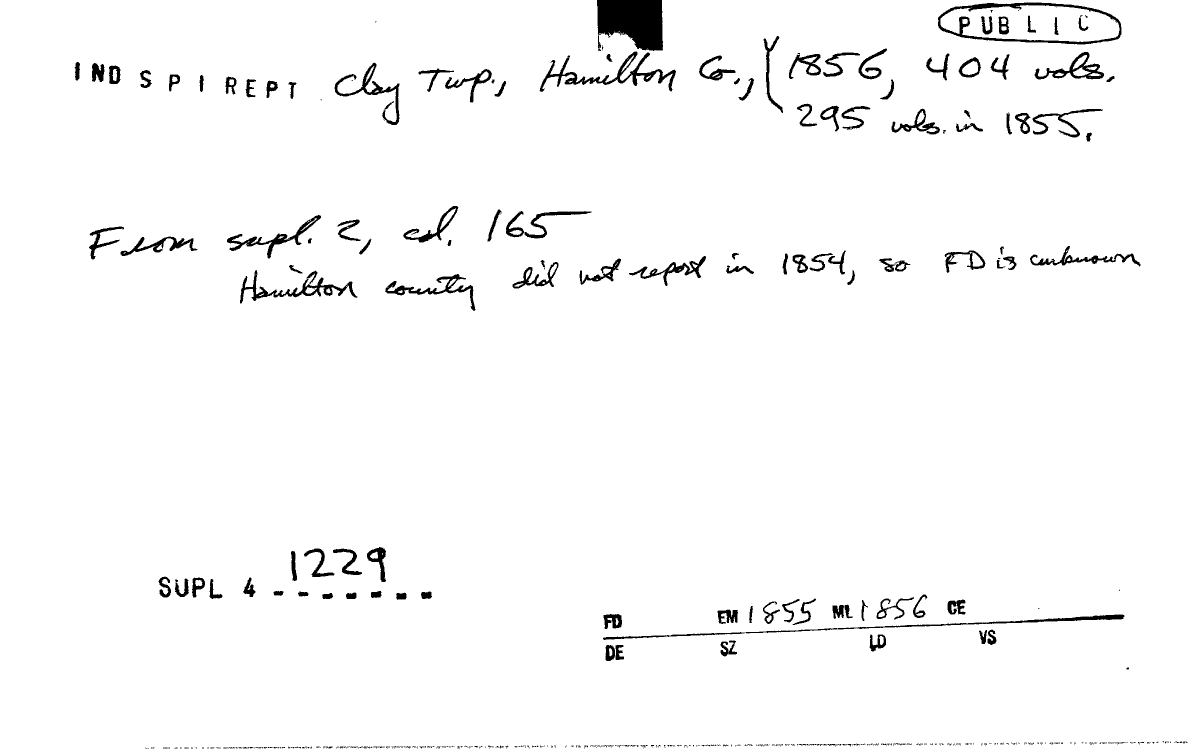 PUBLIC
INDSPIREPT Clay Twp., Hamilton Co., { 1856, 404 vols.
295 vols. in 1855.
From supl. 2, col. 165
Hamilton county did not report in 1854, so FD is unknown
SUPL 4 1229
FD EM 1855 ML 1856 CE
DE SZ LD VS